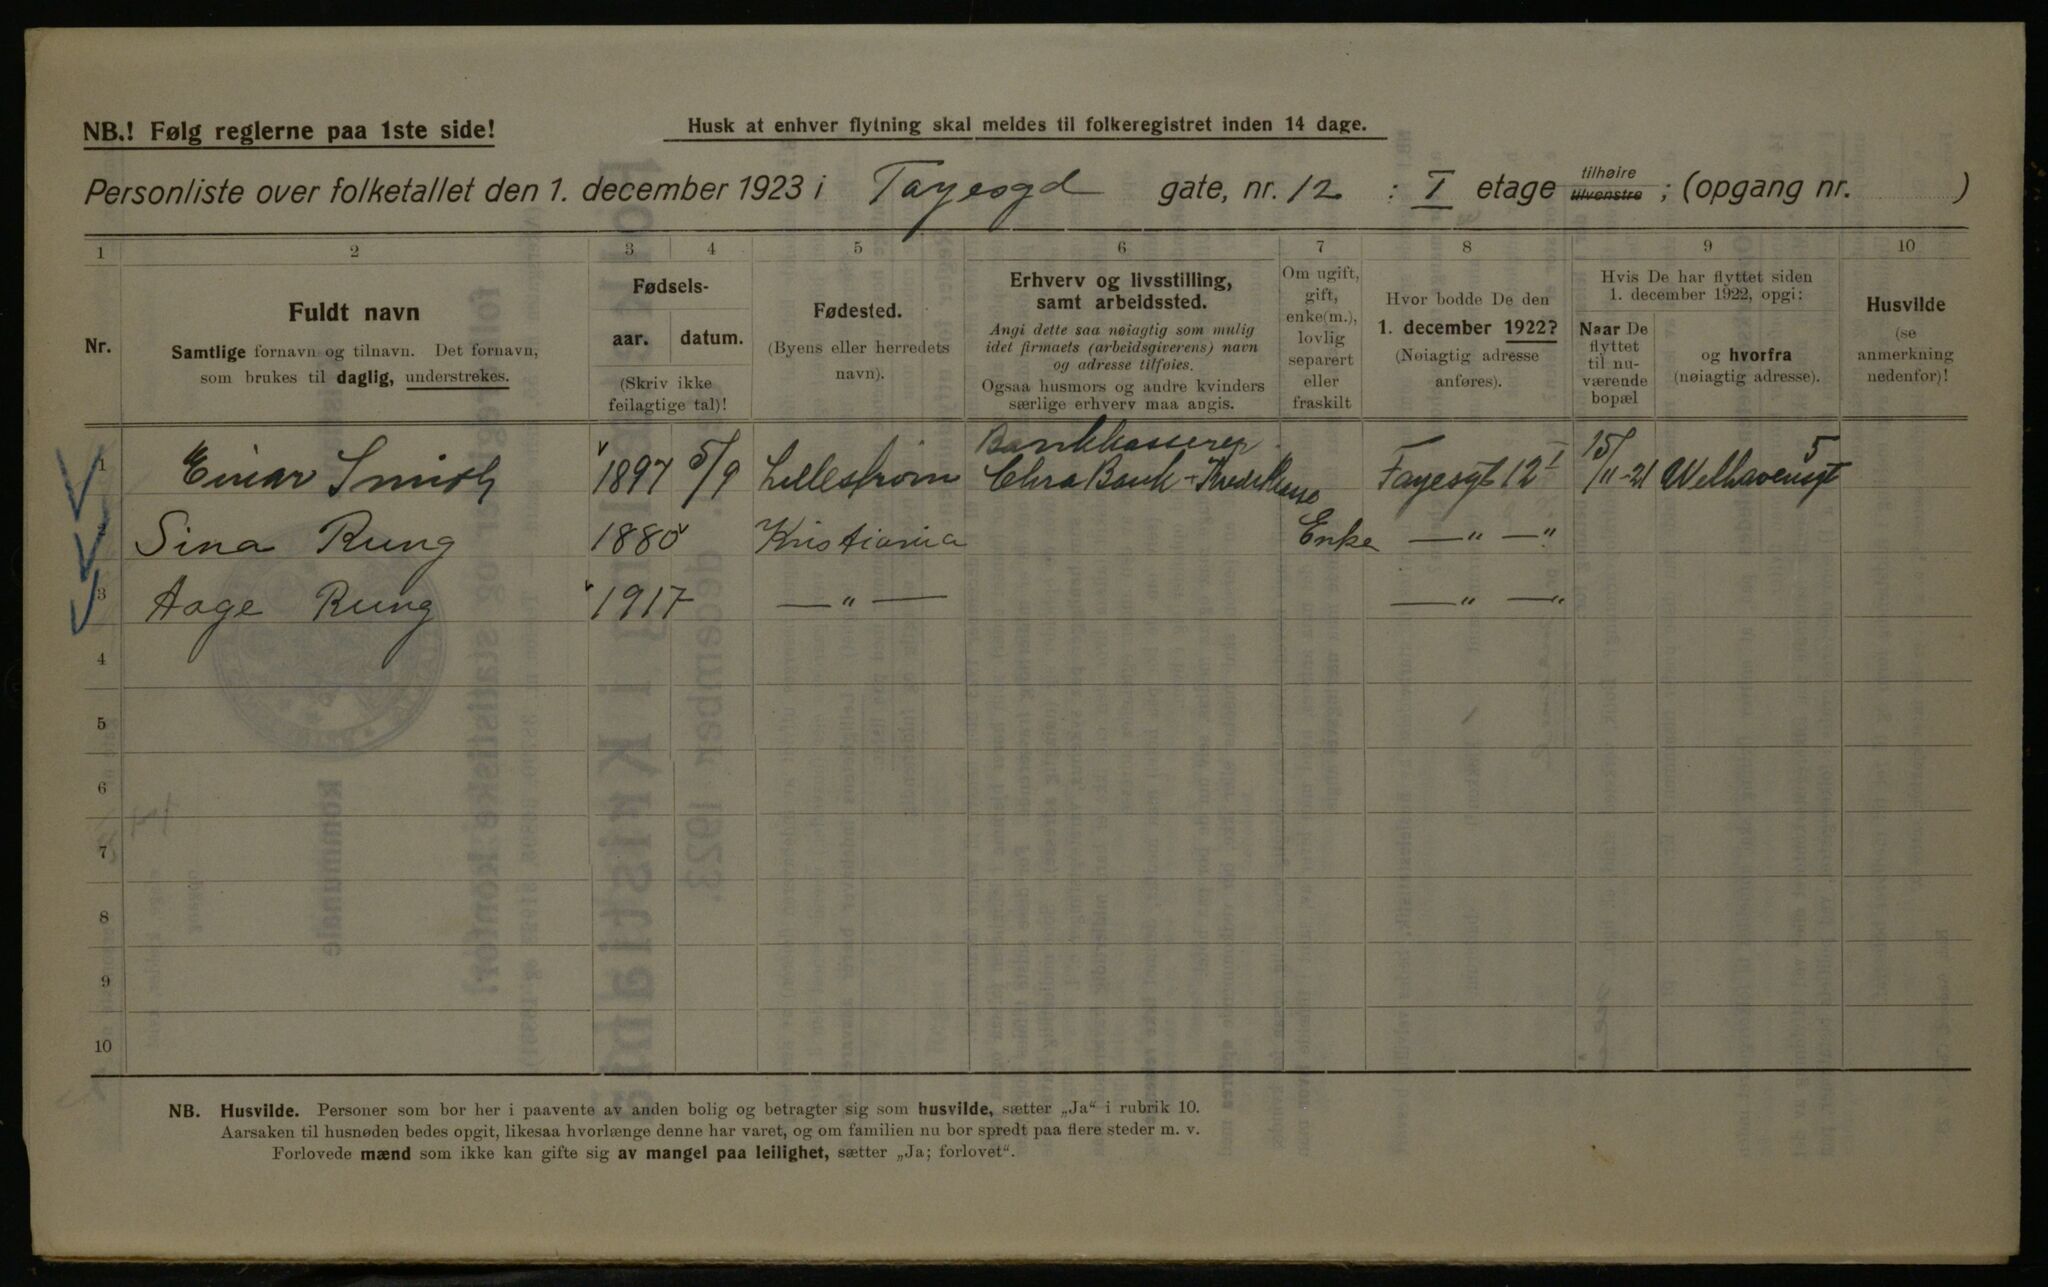 NB.! Følg reglerne paa 1ste side!
Husk at enhver flytning skal meldes til folkeregistret inden 14 dage.
Personliste over folketallet den 1. december 1923 i Fayesgd gate, nr. 12 : I etage tilhøire tilvenstre ; (opgang nr. )
1 2 3 4 5 6 7 8 9 10
Nr.
Fuldt navn
Samtlige fornavn og tilnavn. Det fornavn,
som brukes til daglig, understrekes.
Fødsels-
aar. datum.
(Skriv ikke
feilagtige tal)!
Fødested.
(Byens eller herredets
navn).
Erhverv og livsstilling,
samt arbeidssted.
Angi dette saa nøiagtig som mulig
idet firmaets (arbeidsgiverens) navn
og adresse tilføies.
Ogsaa husmors og andre kvinders
særlige erhverv maa angis.
Om ugift,
gift,
enke(m.),
lovlig
separert
eller
fraskilt
Hvor bodde De den
1. december 1922?
(Nøiagtig adresse
anføres).
Hvis De har flyttet siden
1. december 1922, opgi:
Naar De
flyttet
til nu-
værende
bopæl
og hvorfra
(nøiagtig adresse).
Husvilde
(se
anmerkning
nedenfor)!
Bankkasserer
1 Einar Smith 1897 5/9 Lillestrøm Chra Bank - Fayesgt 12 I 15/11-21 Welhavensgt 5
2 Sina Rung 1880 Kristiania Enke — " — "
3 Aage Rung 1917 — " — — " — "
4
5
6
7
8
9
10
NB. Husvilde. Personer som bor her i paavente av anden bolig og betragter sig som husvilde, sætter „Ja“ i rubrik 10.
Aarsaken til husnøden bedes opgit, likesaa hvorlænge denne har varet, og om familien nu bor spredt paa flere steder m. v.
Forlovede mænd som ikke kan gifte sig av mangel paa leilighet, sætter „Ja; forlovet“.